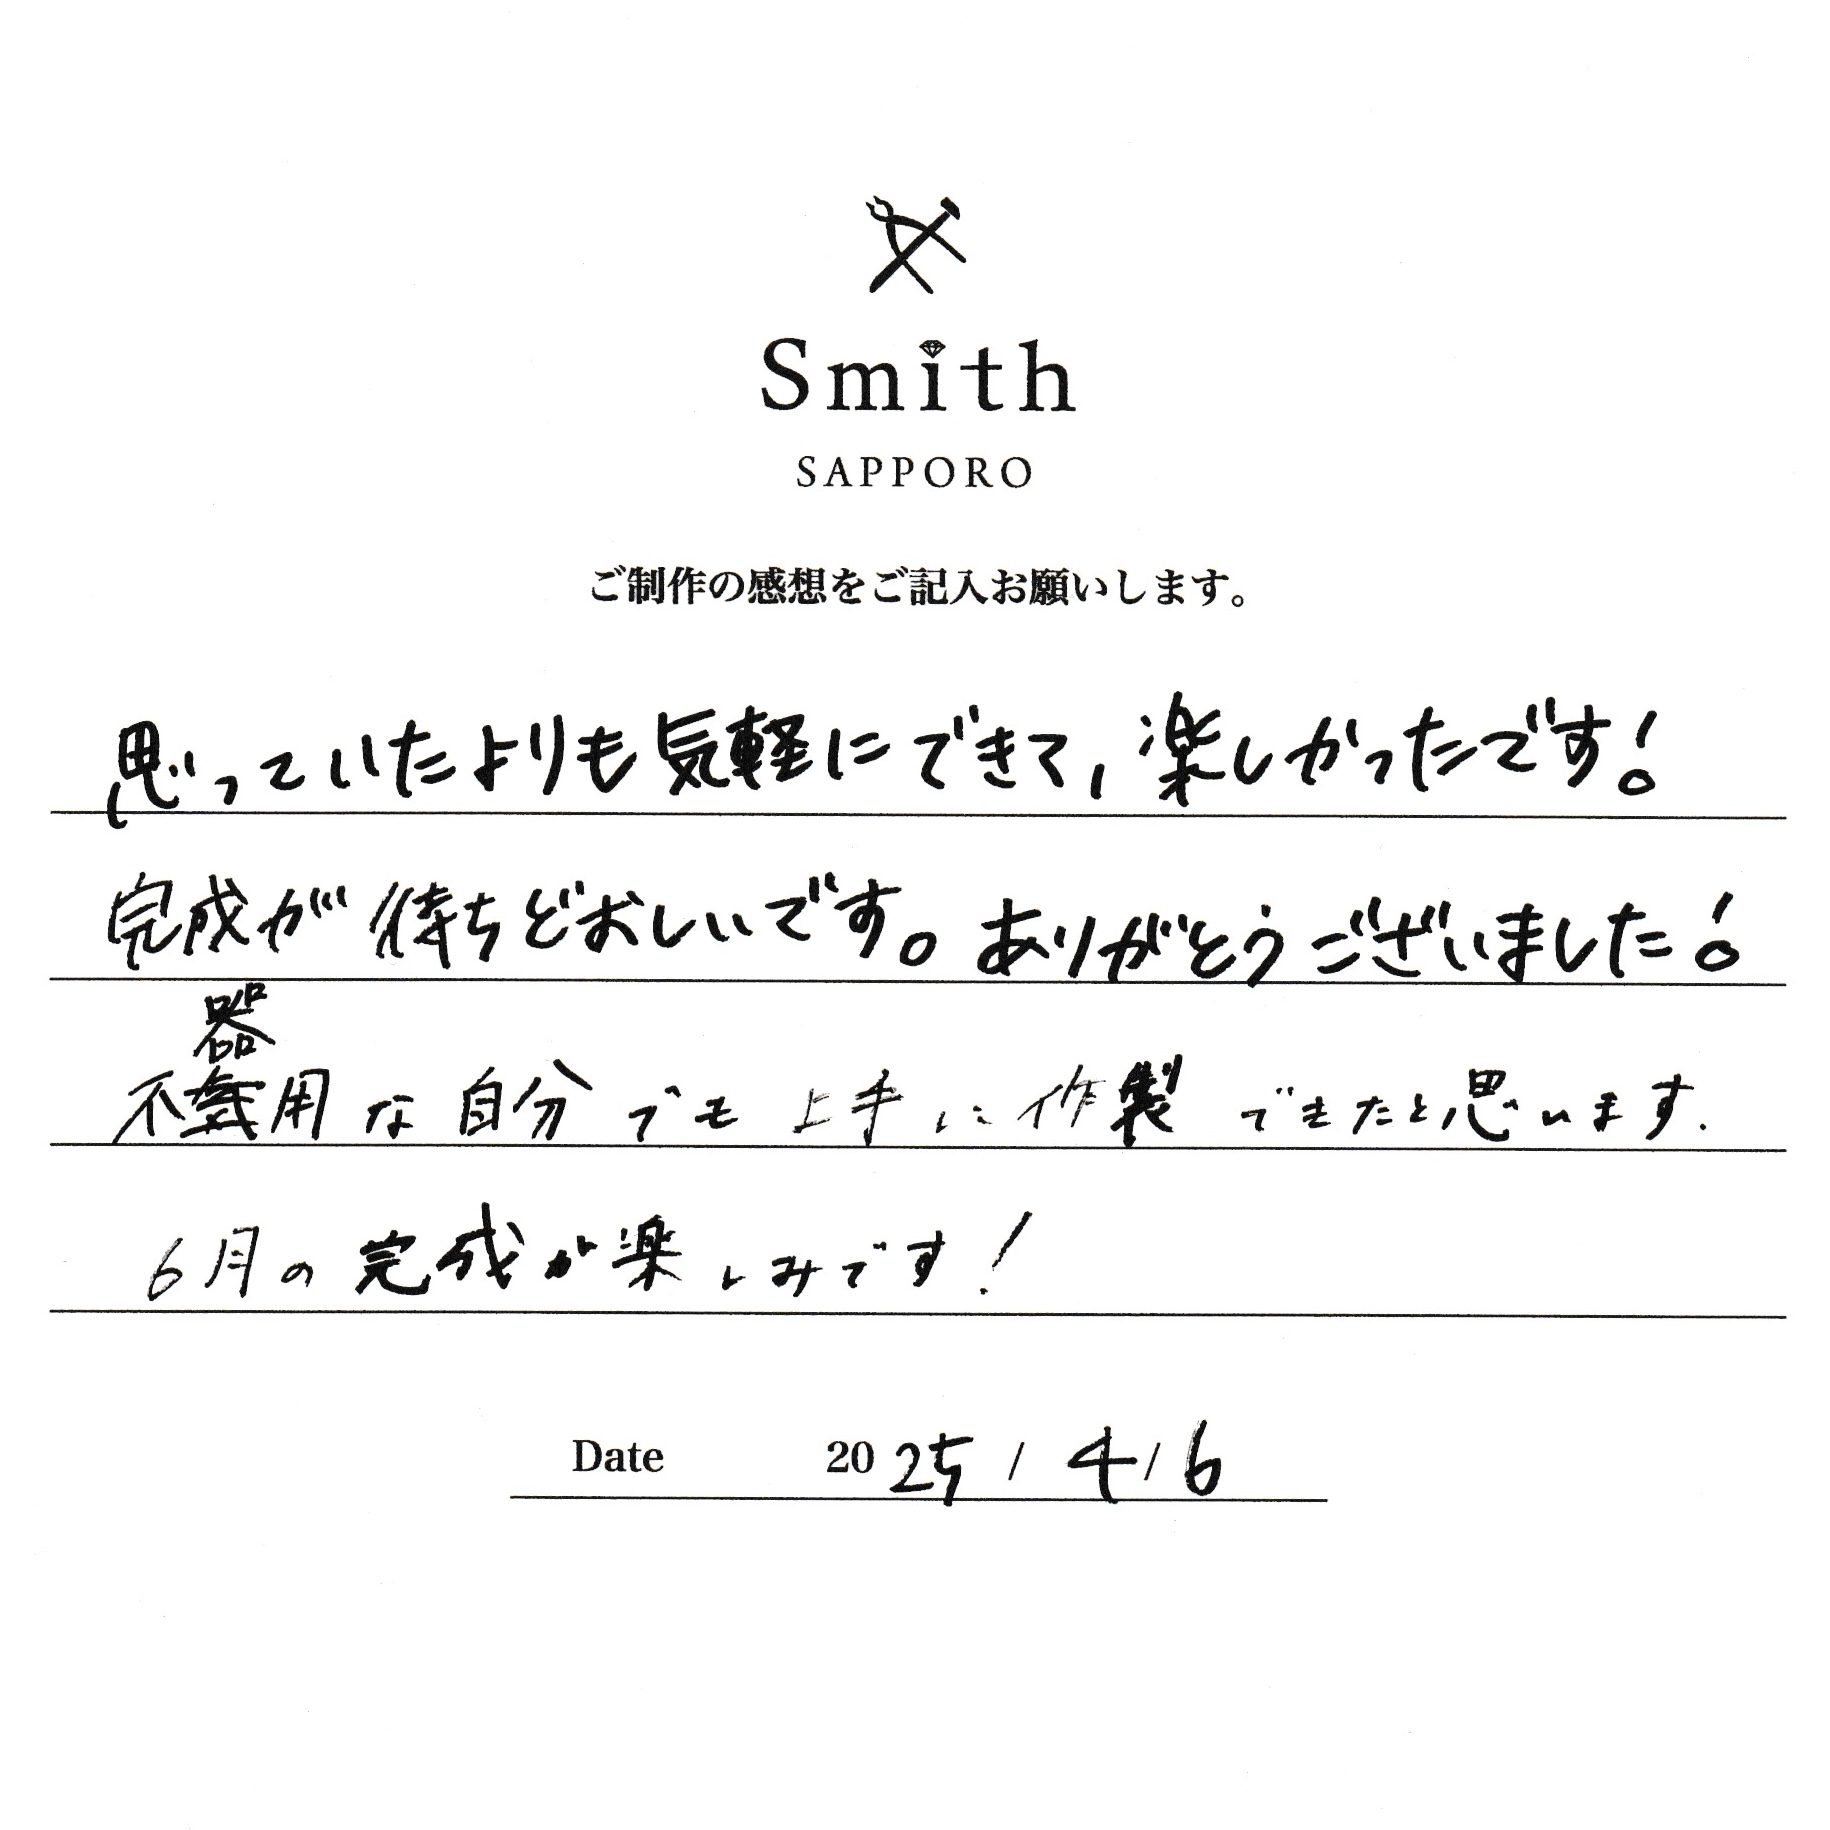 Smith
SAPPORO
ご制作の感想をご記入お願いします。
思っていたよりも気軽にできて,楽しかったです!
完成が待ちどおしいです。ありがとうございました!
器
不用な自分でも上手に作製できたと思います.
6月の完成が楽しみです!
Date 2025/4/6